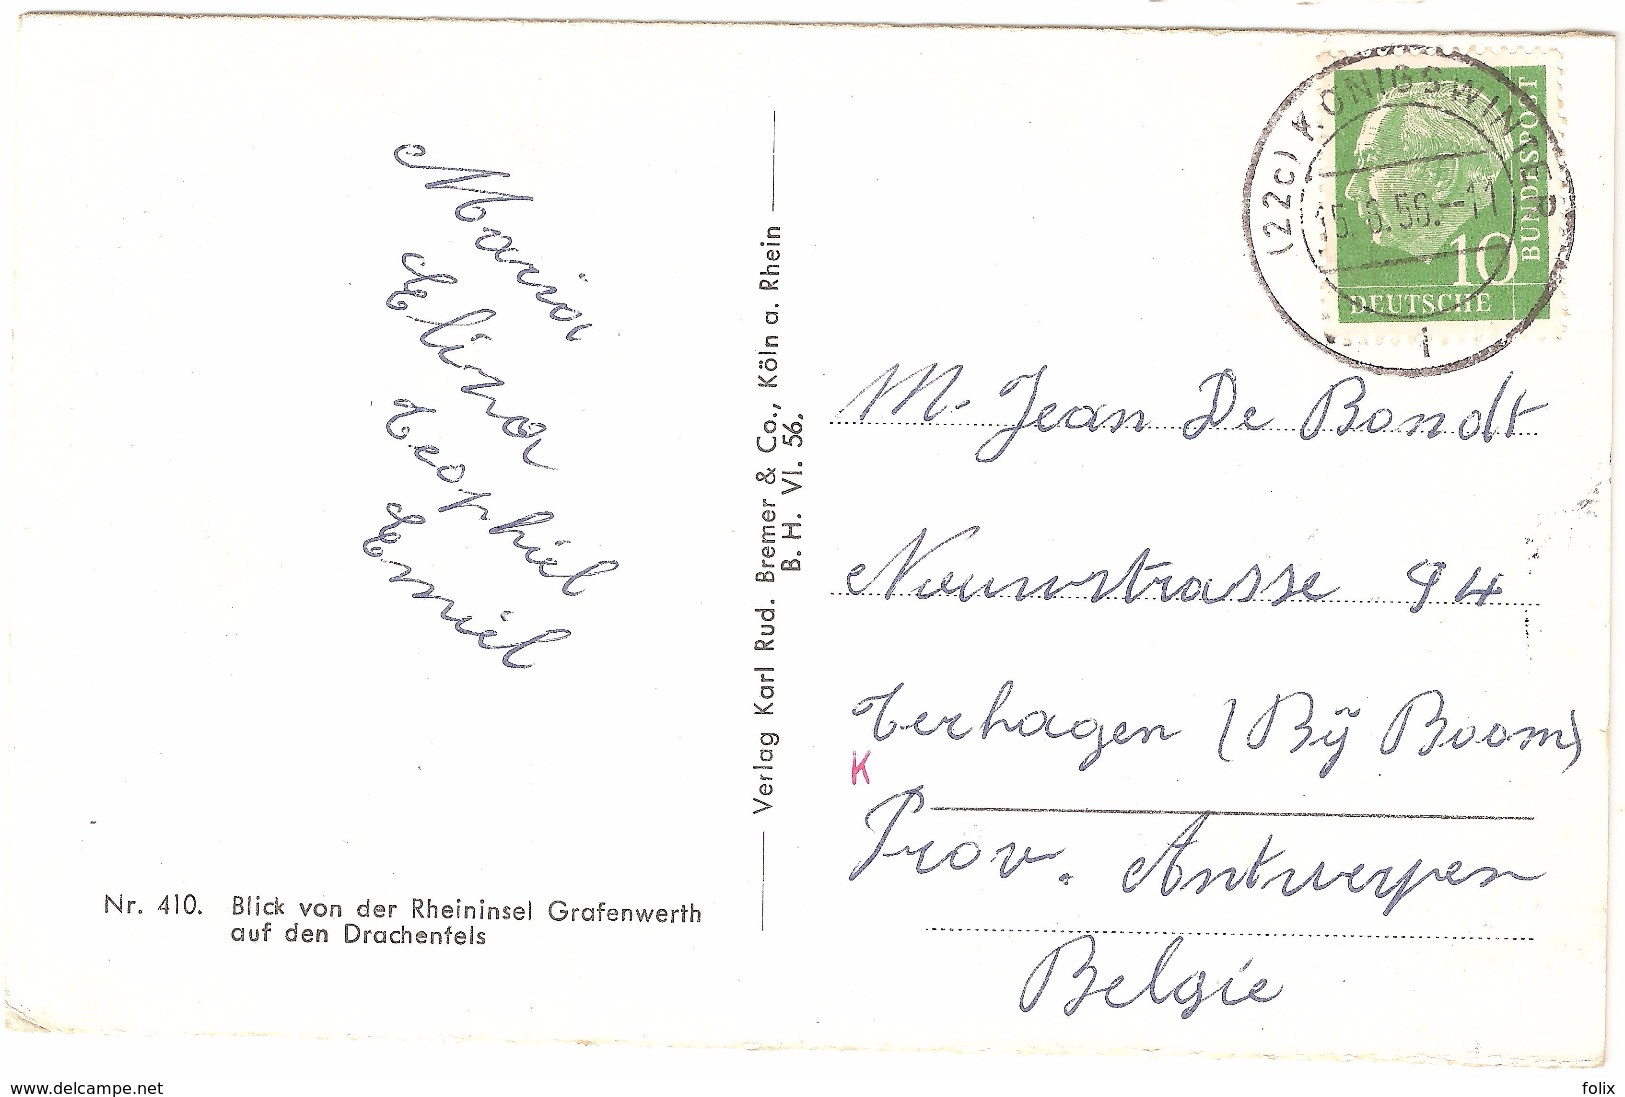 Maria
Elina
Teophiel
Emiel
Nr. 410. Blick von der Rheininsel Grafenwerth
auf den Drachenfels
Verlag Karl Rud. Bremer & Co., Köln a. Rhein
B. H. VI. 56.
(22c) KÖNIGSWINTER
.56.-11
1
10
DEUTSCHE
BUNDESPOST
M. Jean De Bondt
94
Terhagen (Bij Boom)
K
Prov. Antwerpen
Belgie
www.delcampe.net
felix